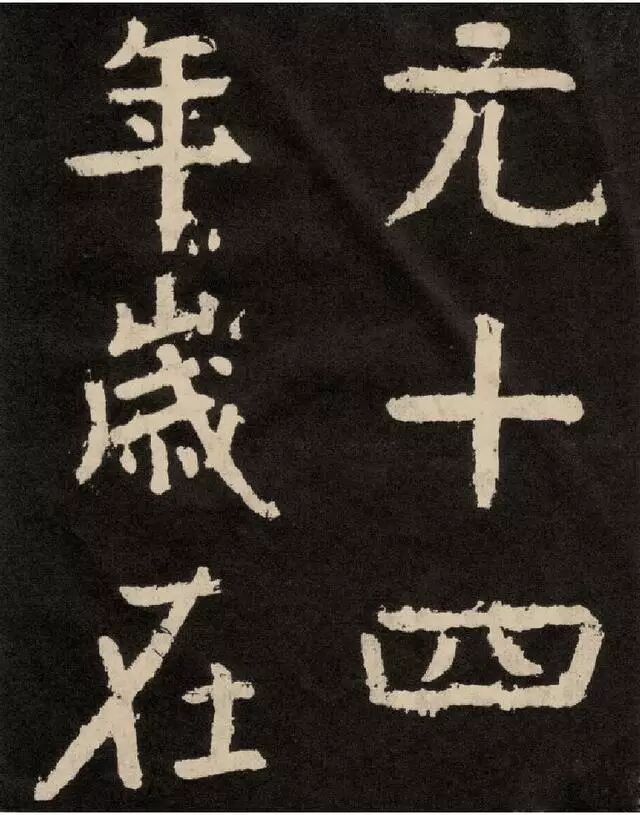 元十四
年歲在